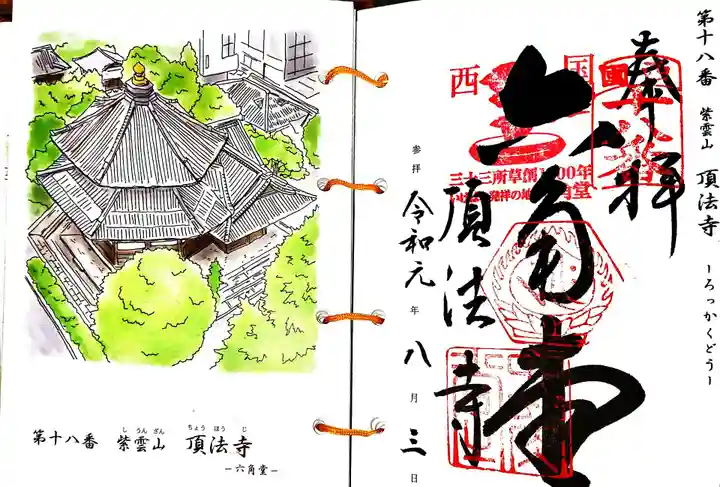 第十八番 紫雲山 頂法寺
しうんざん ちょうほうじ
-六角堂-
第十八番 紫雲山 頂法寺 -ろっかくどう-
奉拝
六角堂
頂法寺
参拝 令和元年八月三日
西国
三十三所草創1300年
発祥の地
角堂